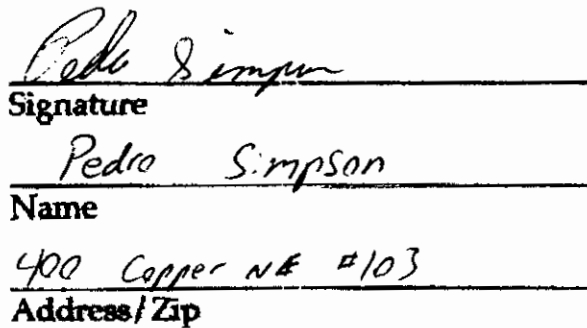 Pedro Simpson
Signature
Pedro Simpson
Name
400 Copper NE #103
Address/Zip